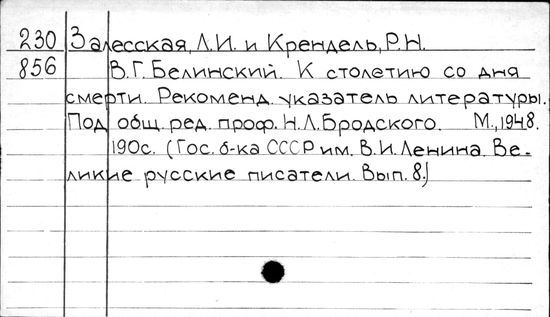 230 Залесская, Л.И. и Крендель, Р.Н.
856 В.Г. Белинский. К столетию со дня
смерти. Рекоменд. указатель литературы.
Под общ. ред. проф. Н.Л. Бродского. М., 1948.
190с. (Гос. б-ка СССР им. В.И. Ленина. Ве-
ликие русские писатели. Вып. 8.)